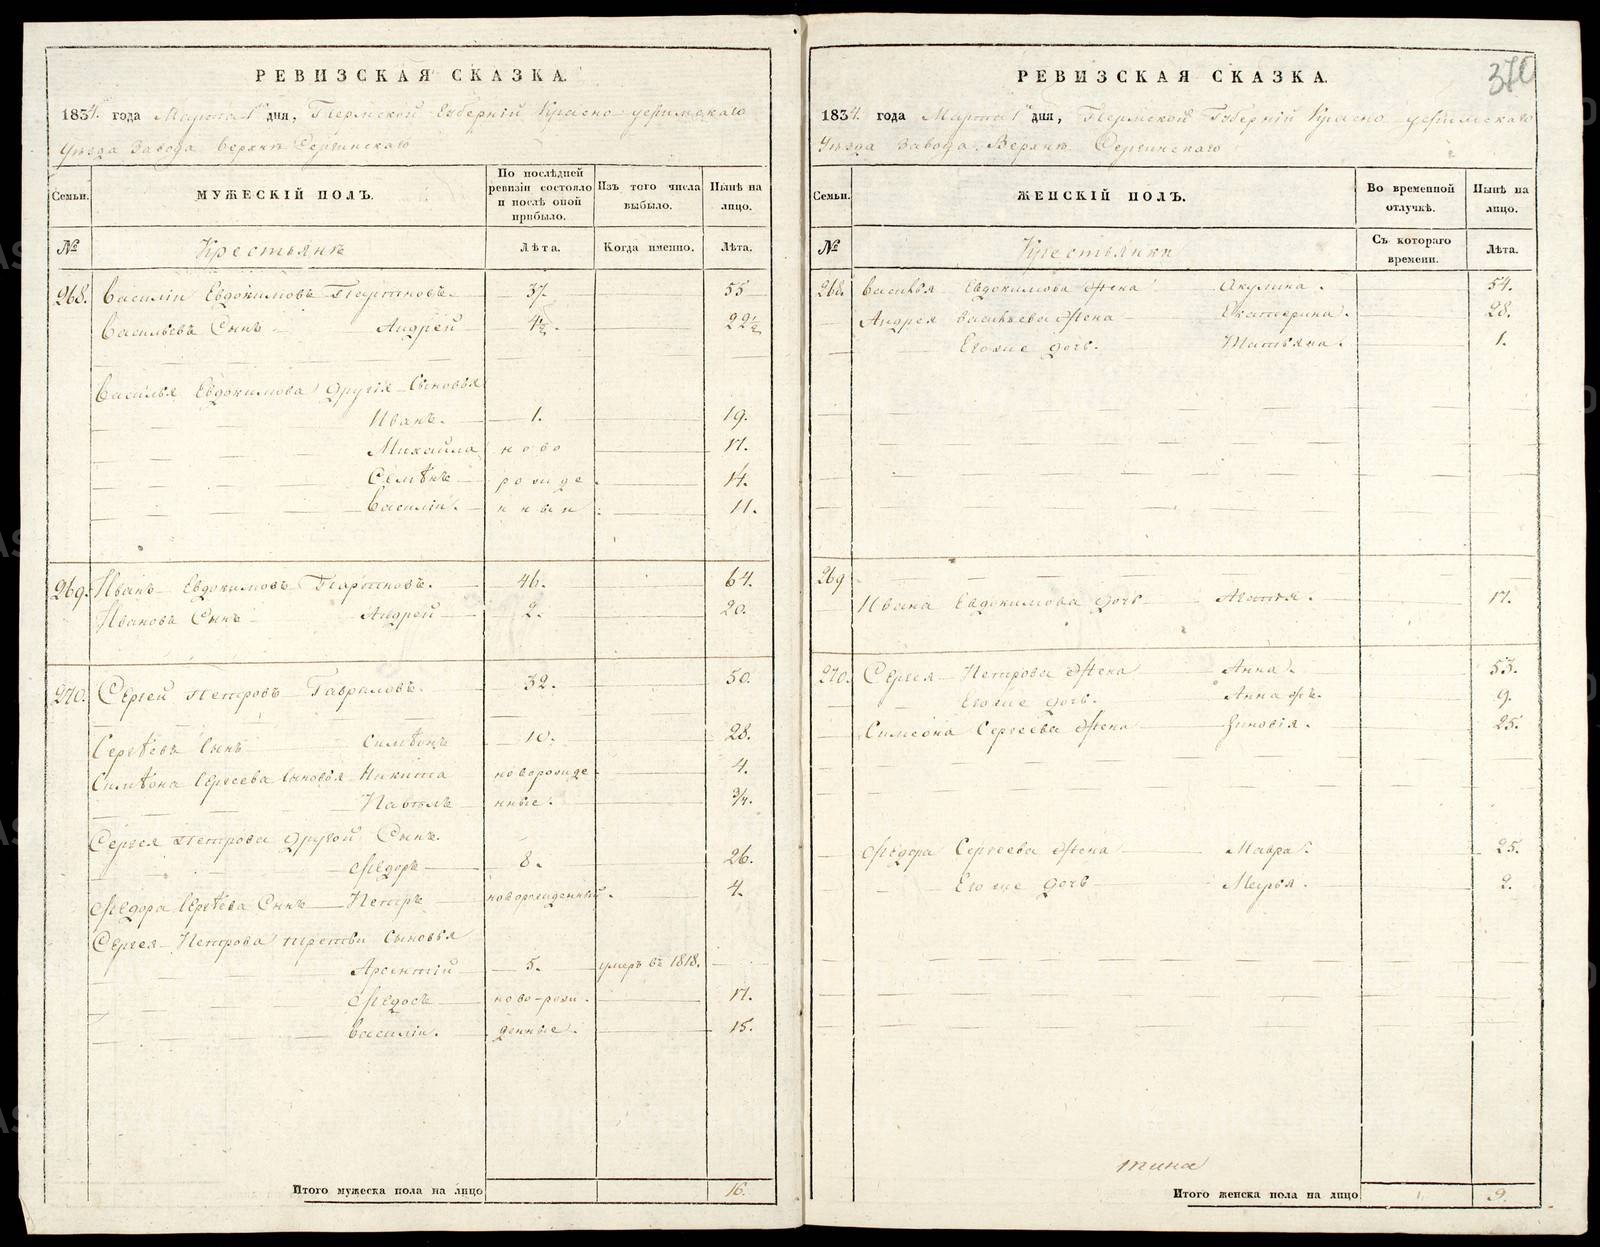 370
РЕВИЗСКАЯ СКАЗКА.
1834. года Марта 1 дня, Пермской Губерніи Красно-уфимскаго
Уѣзда Завода Верхнъ Сергинскаго
Семьи. МУЖЕСКІЙ ПОЛЪ. По послѣдней ревизіи состояло и послѣ оной прибыло. Изъ того числа выбыло. Нынѣ на лицо.
№ Крестьянъ Лѣта. Когда именно. Лѣта.
268. Василій Евдокимовъ Партновъ. 37. 55
Васильева Сынъ Андрей 4½ 22½
Василья Евдокимова другія Сыновья
Иванъ. 1. 19.
Михайла ново 17.
Семѣнъ рожде 14.
Василій. нныи 11.
269. Иванъ Евдокимовъ Партновъ. 46. 64.
Иванова Сынъ Андрей 2. 20.
270. Сергей Петровъ Гавриловъ. 32. 50.
Сергѣева Сынъ Симѣонъ 10. 28.
Симѣона Сергеева Сыновья Никита новорожде 4.
Павелъ нные. ¾.
Сергея Петрова другой Сынъ.
Ѳедоръ 8. 26.
Ѳедора Сергѣева Сынъ Петръ новорожденный. 4.
Сергея Петрова третьи Сыновья
Арсентій 5. умеръ въ 1818.
Ѳедосъ ново-рож 17.
Василій. денные. 15.
Итого мужеска пола на лицо 16.
РЕВИЗСКАЯ СКАЗКА.
1834. года Марта 1 дня, Пермской Губерніи Красно уфимскаго
Уѣзда Завода Верхнъ Сергинскаго
Семьи. ЖЕНСКІЙ ПОЛЪ. Во временной отлучкѣ. Нынѣ на лицо.
№ Крестьянки Съ котораго времени. Лѣта.
268. Василья Евдокимова Жена Акулина. 54.
Андрея Васильева Жена Екатерина. 28.
Его же дочь. Татьяна. 1.
269 Ивана Евдокимова дочь Агафья. 17.
270. Сергея Петрова Жена Анна. 53.
Его же дочь. Анна 9.
Симеона Сергеева Жена Зиновія. 25.
Ѳедора Сергеева Жена Мавра. 25.
Его же дочь Марья. 2.
тина
Итого женска пола на лицо 9.